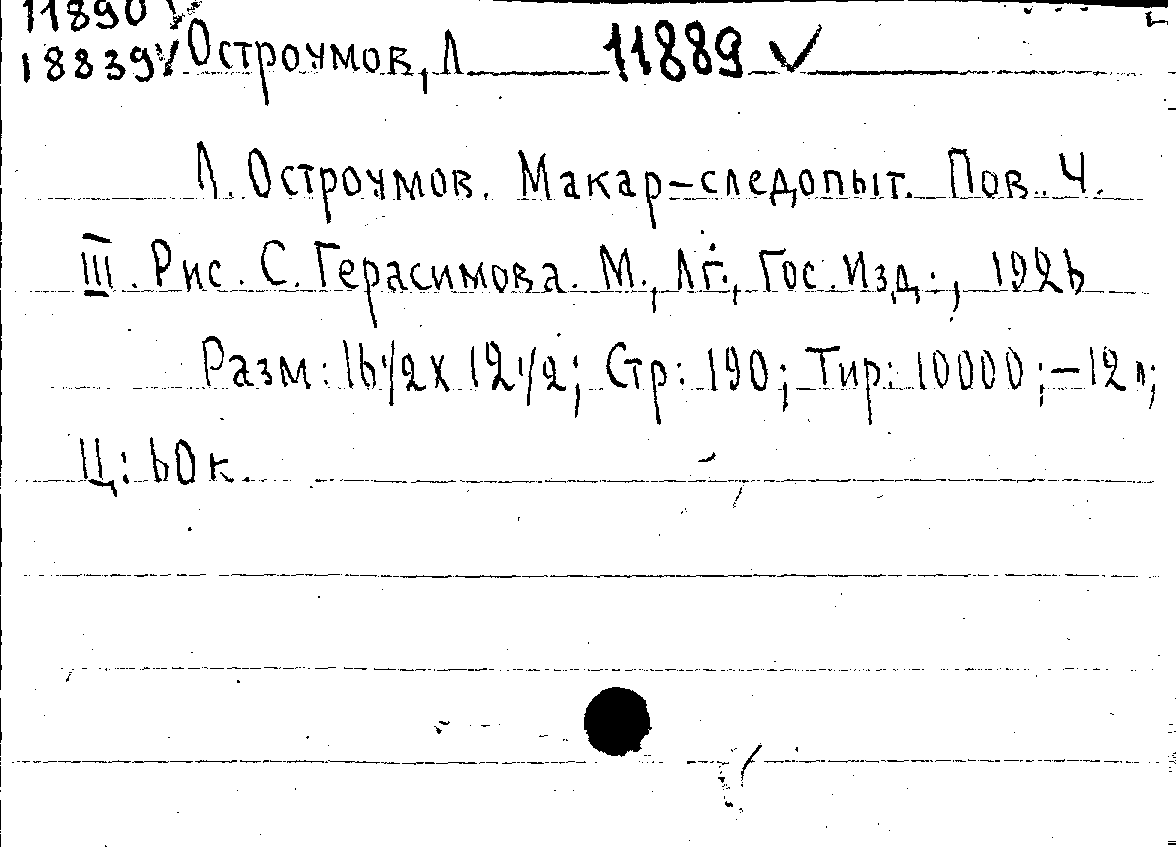 11890 V
18839 V Остроумов, Л 11889 V
Л. Остроумов. Макар-следопыт. Пов. Ч.
III. Рис. С. Герасимова. М., Лг., Гос. Изд., 1926
Разм: 16 1/2 x 12 1/2; Стр: 190; Тир: 10000; -12 л;
Ц: 60 к.